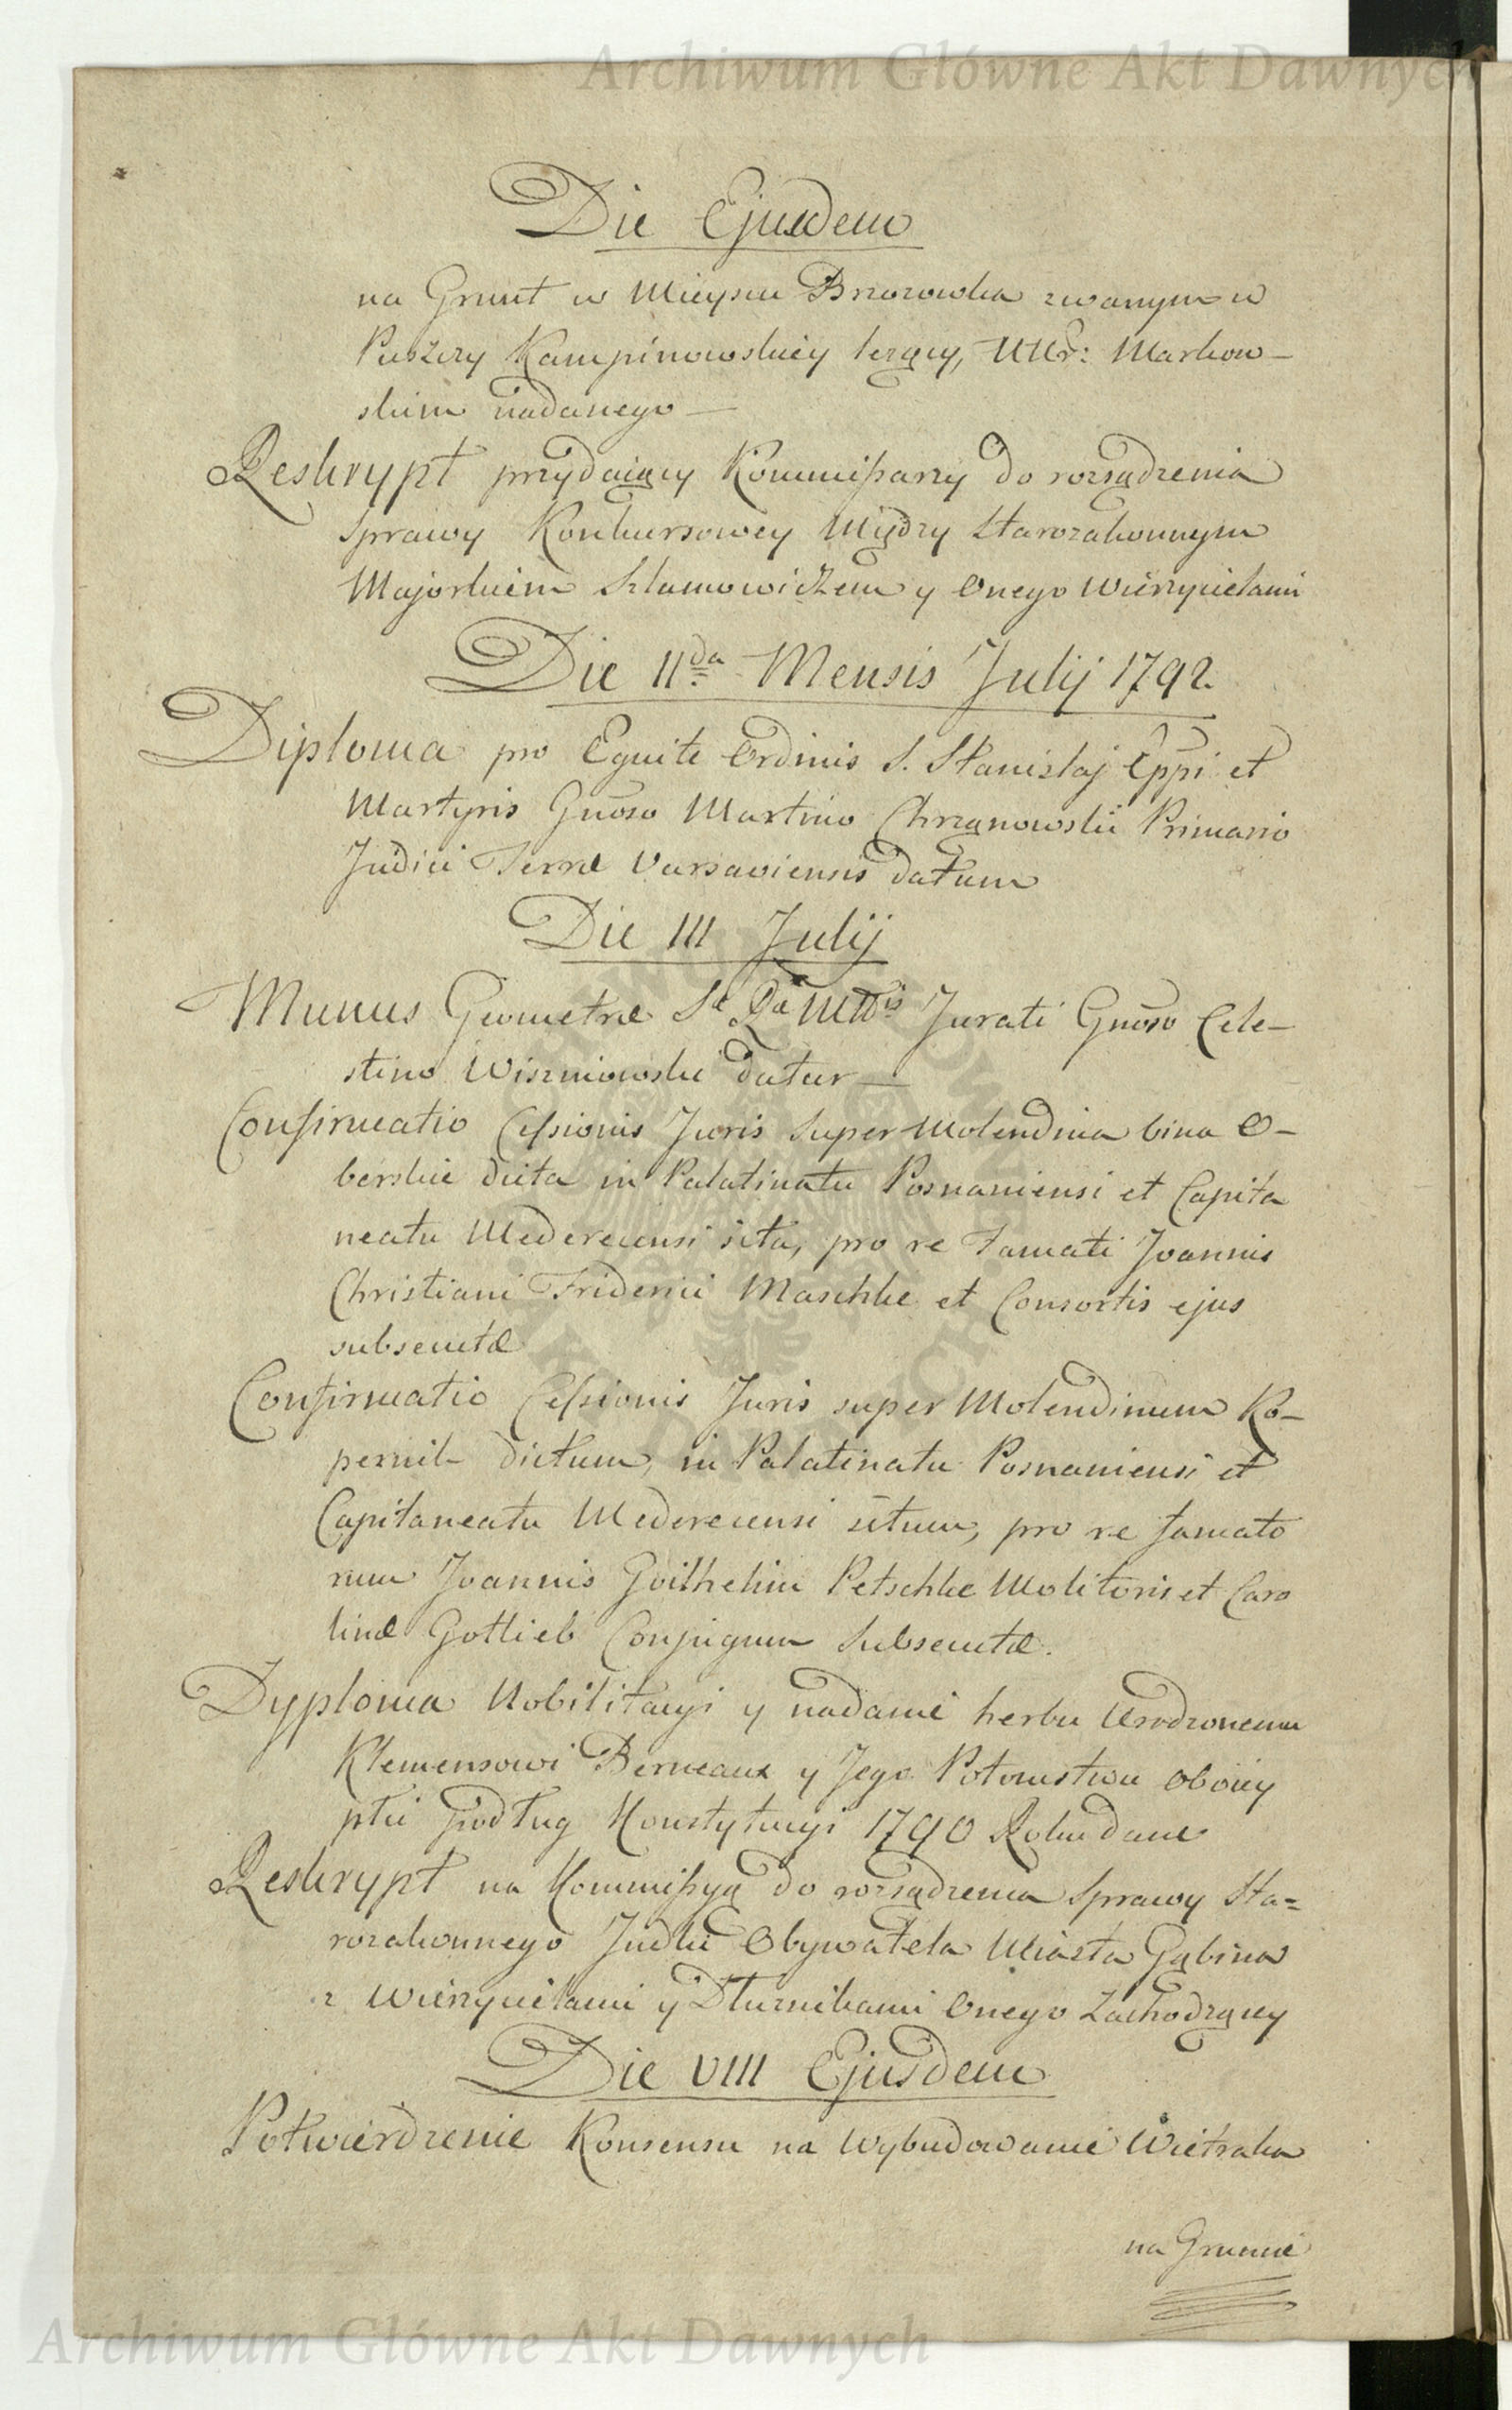 Archiwum Główne Akt Dawnych
Die Ejusdem
na Grunt w Mieyscu Brzozowka zwanym w
Puszczy Kampinowskiey leżący, UUr: Markow–
skim nadanego –
Reskrypt przydaiący Kommissarzy do rozsądzenia
Sprawy Konkursowey Między Starozakonnym
Majorkiem Szlamowiczem y Onego Wierzycielami
Die II da Mensis Julij 1792.
Diploma pro Equite Ordinis S. Stanislaj Eppi et
Martyris Gnoso Martino Chrzanowski Primario
Judici Terræ Varsaviensis datum
Die III Julij
Munus Geometræ Sæ Ræ Mttis Jurati Gnoso Cele–
stino Wiszniowski datur –
Confirmatio Cessionis Juris super Molendina bina O–
berskie dicta in Palatinatu Posnaniensi et Capita
neatu Mederecensi sita, pro re Famati Joannis
Christiani Friderici Maschke et Consortis ejus
subsecutæ
Confirmatio Cessionis Juris super Molendinum Ko–
pernik dictum, in Palatinatu Posnaniensi et
Capitaneatu Mederecensi situm, pro re famato
rum Joannis Guilhelmi Petschke Molitoris et Caro
linæ Gottlieb Conjugum Subsecutæ.
Dyploma Nobilitacyi y nadanie herbu Urodzonemu
Klemensowi Berneaux y Jego Potomstwu oboiey
płci podług Konstytucyi 1790 Roku dane
Reskrypt na Kommissyą do rozsądzenia Sprawy Sta=
rozakonnego Judki Obywatela Miasta Gąbina
z Wierzycielami y Dłużnikami Onego Zachodzący
Die VIII Ejusdem
Potwierdzenie Konsensu na Wybudowanie Wiatraka
na Gruncie
Archiwum Główne Akt Dawnych